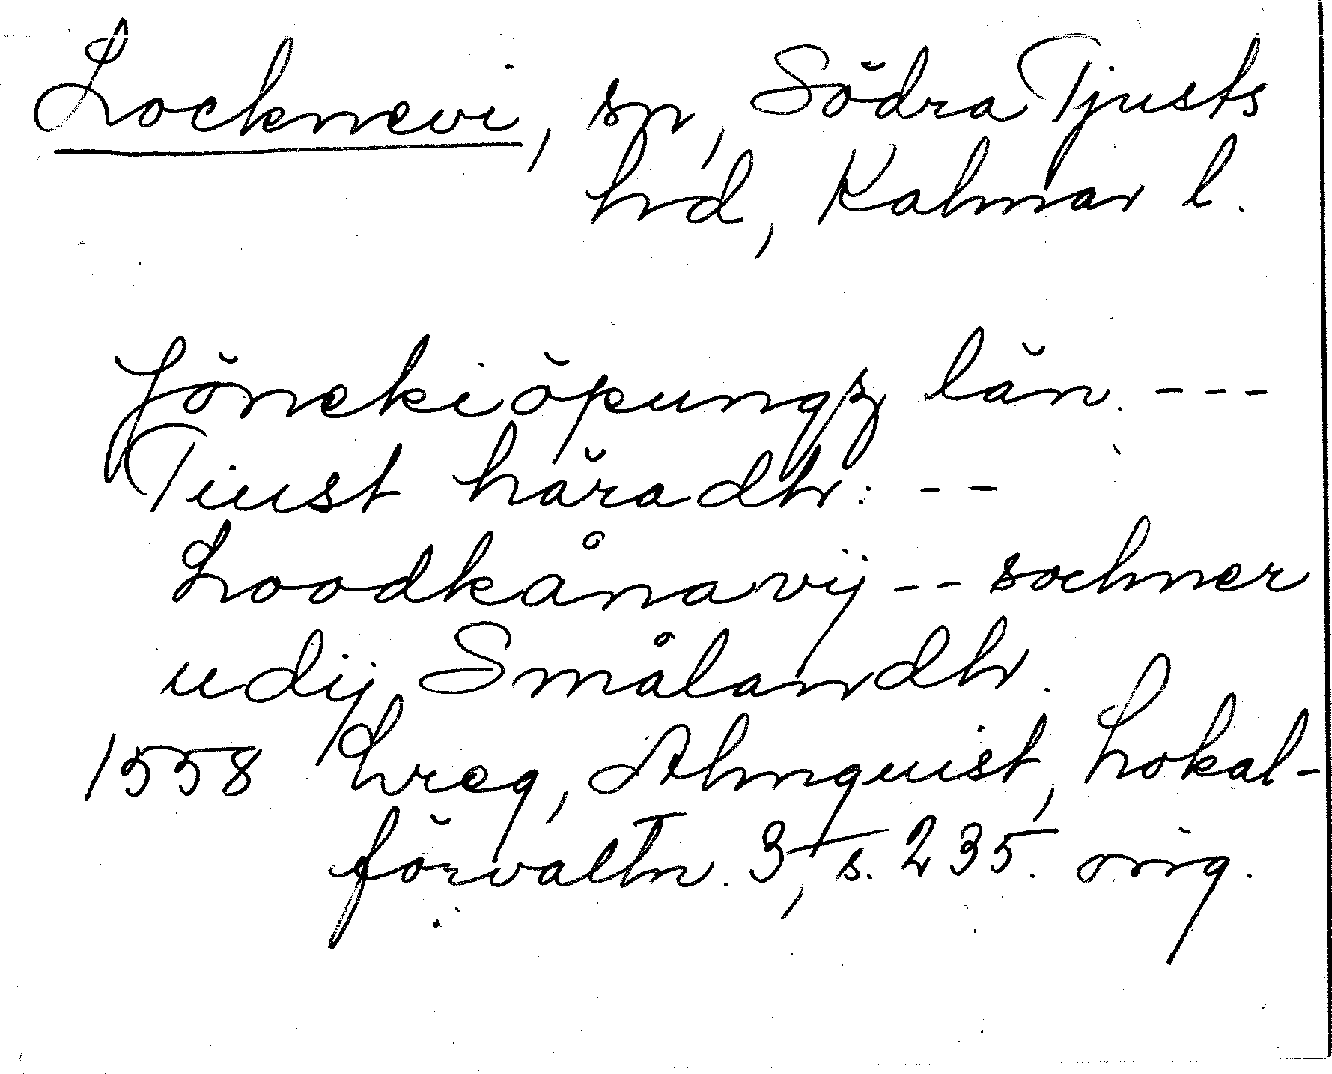 Locknevi, sn, Södra Tjusts
hd, Kalmar l.
Jönekiöpungz län. ---
Tiust häradh: --
Loodkånavij -- sochner
udij Smålandh.
1558 Lreg, Almquist, Lokal-
förvaltn. 3, s. 235. orig.